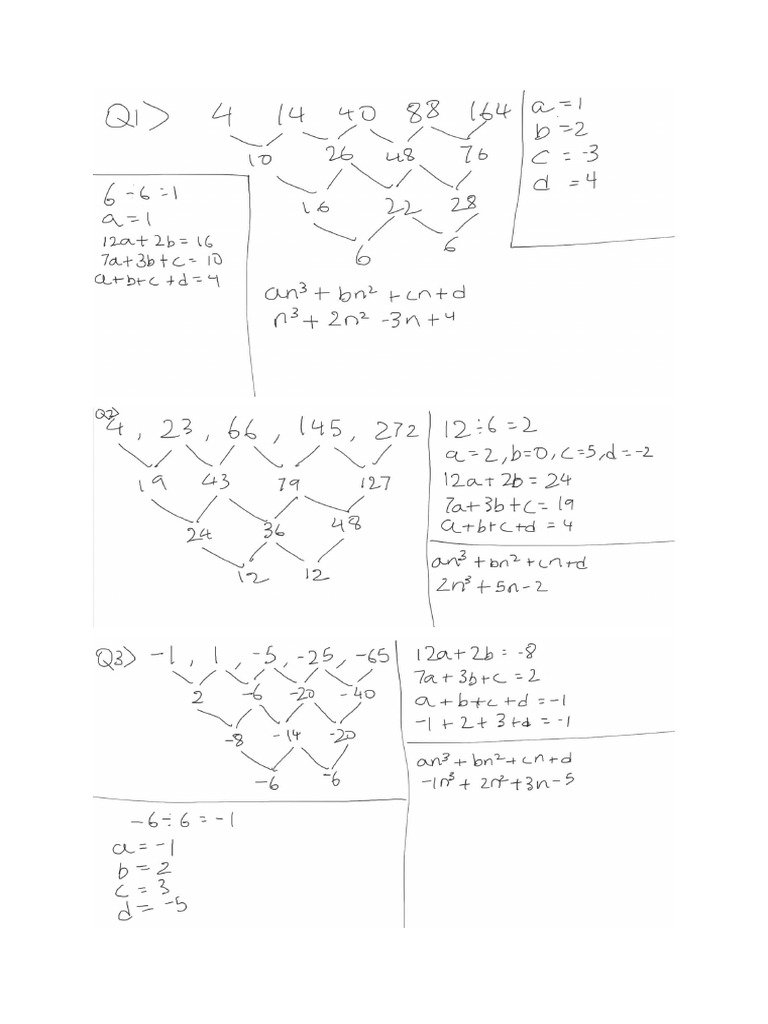 Q1> 4 14 40 88 164
10 26 48 76
16 22 28
6 6
an³ + bn² + cn + d
n³ + 2n² -3n + 4
6 ÷ 6 = 1
a = 1
12a + 2b = 16
7a + 3b + c = 10
a + b + c + d = 4
a = 1
b = 2
c = -3
d = 4
Q2>
4, 23, 66, 145, 272
19 43 79 127
24 36 48
12 12
12 ÷ 6 = 2
a = 2, b = 0, c = 5, d = -2
12a + 2b = 24
7a + 3b + c = 19
a + b + c + d = 4
an³ + bn² + cn + d
2n³ + 5n - 2
Q3> -1, 1, -5, -25, -65
2 -6 -20 -40
-8 -14 -20
-6 -6
12a + 2b = -8
7a + 3b + c = 2
a + b + c + d = -1
-1 + 2 + 3 + d = -1
an³ + bn² + cn + d
-1n³ + 2n² + 3n - 5
-6 ÷ 6 = -1
a = -1
b = 2
c = 3
d = -5